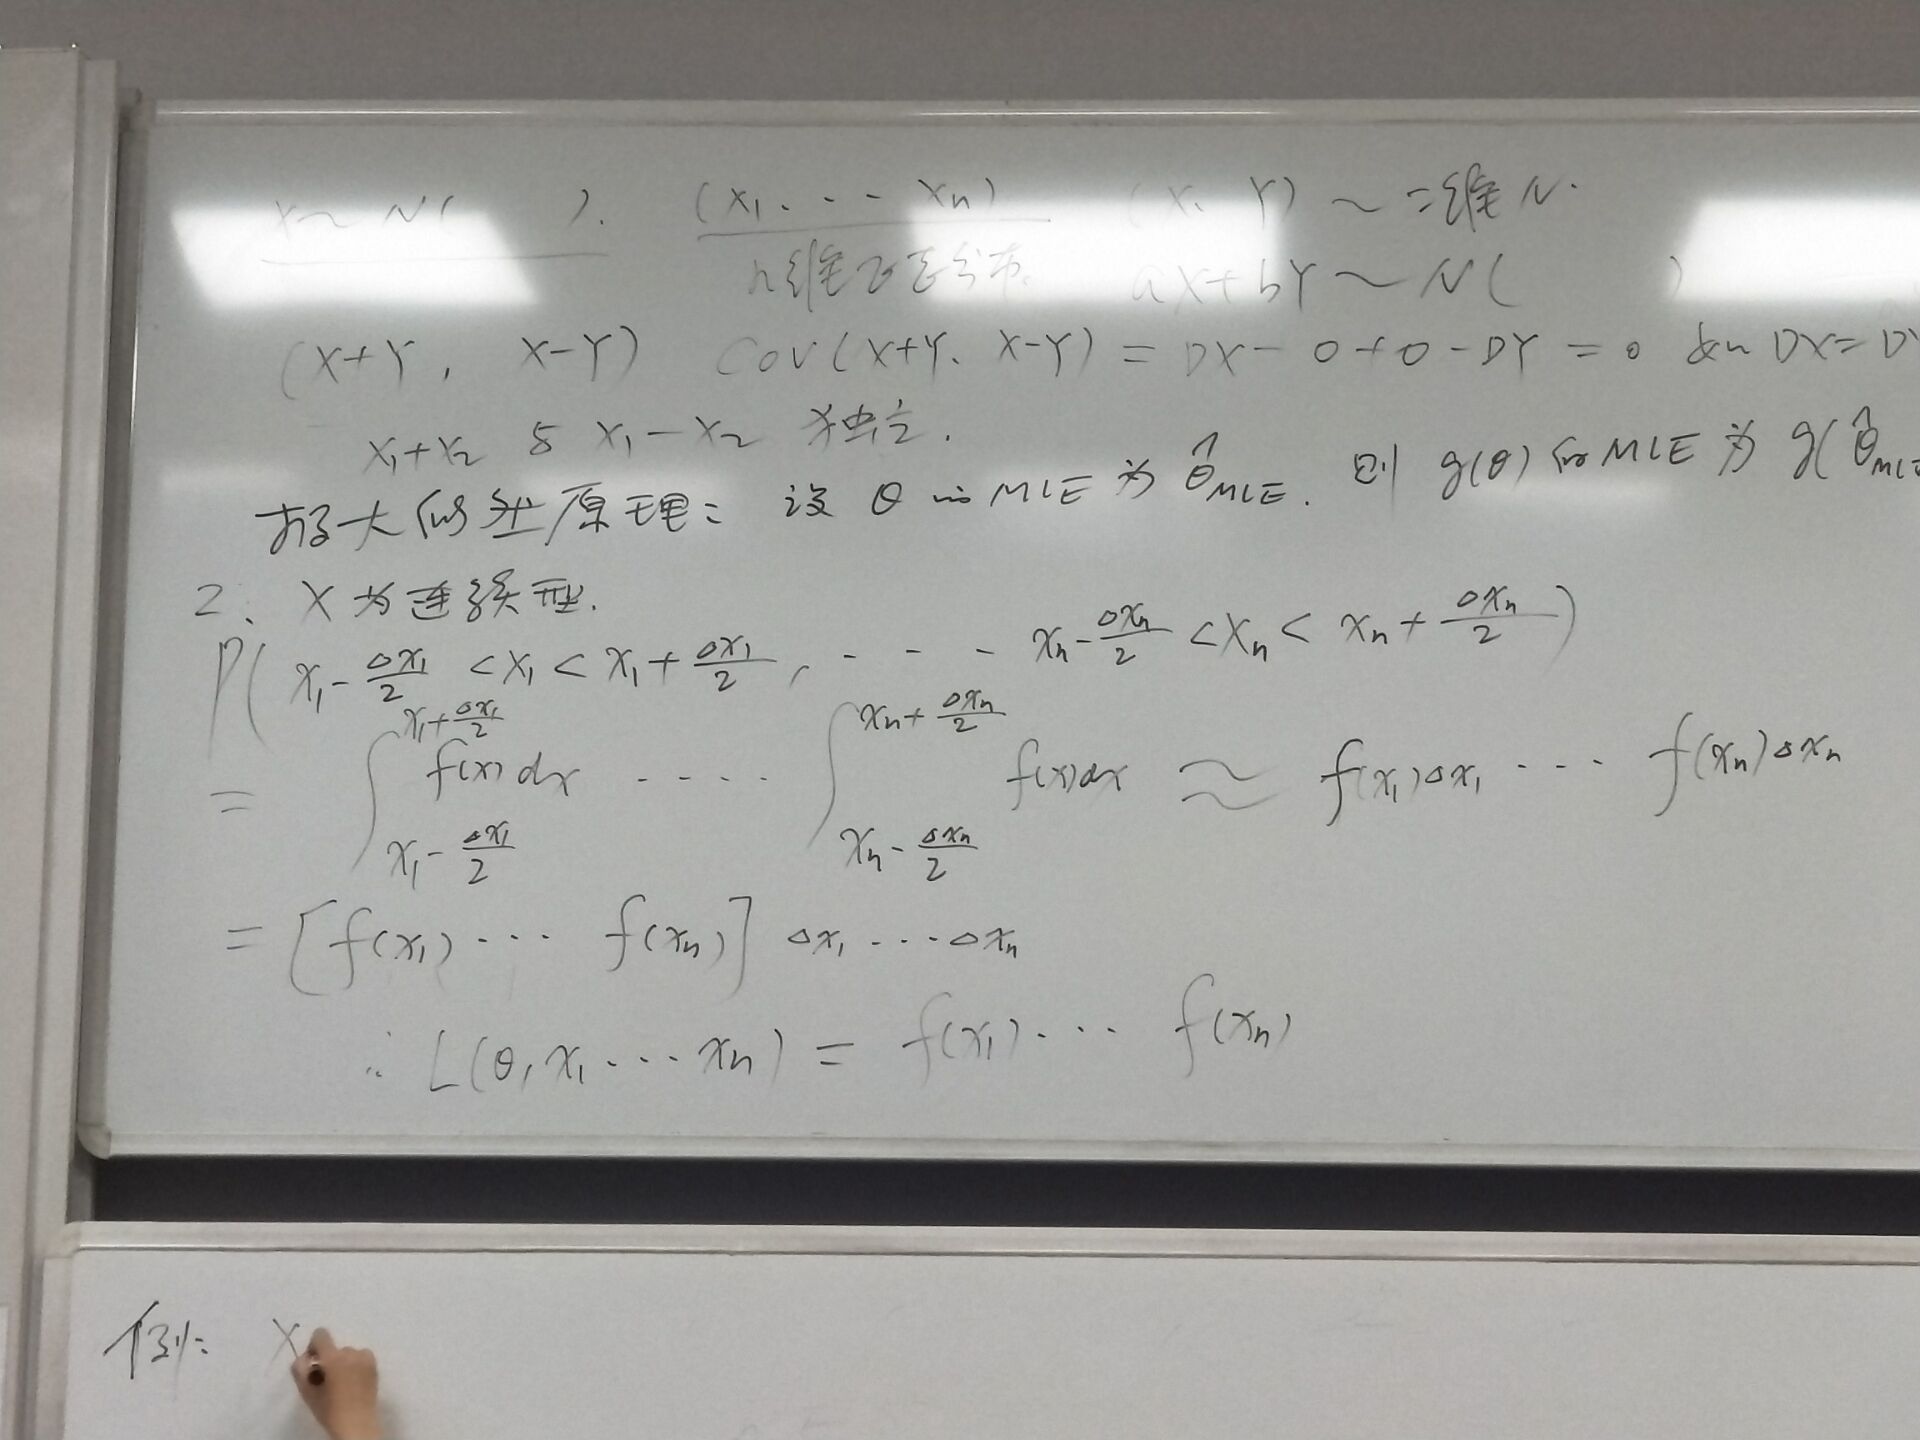 X ~ N(        ).    (X1, ... Xn)    (X, Y) ~ 二维N.
n维正态分布.    aX+bY ~ N(        )
(X+Y, X-Y)    Cov(X+Y, X-Y) = DX - 0 + 0 - DY = 0    DX = DY
X1+X2 与 X1-X2 独立.
极大似然原理: 设 θ 的 MLE 为 θ̂MLE. 则 g(θ) 的 MLE 为 g(θ̂MLE
2、 X 为连续型.
P( x1 - Δx1/2 < X1 < x1 + Δx1/2, - - - xn - Δxn/2 < Xn < xn + Δxn/2 )
= ∫_{x1 - Δx1/2}^{x1 + Δx1/2} f(x)dx ····· ∫_{xn - Δxn/2}^{xn + Δxn/2} f(x)dx ≈ f(x1)Δx1 ··· f(xn)Δxn
= [f(x1) ··· f(xn)] Δx1 ··· Δxn
∴ L(θ, x1 ··· xn) = f(x1) ··· f(xn)
例: X